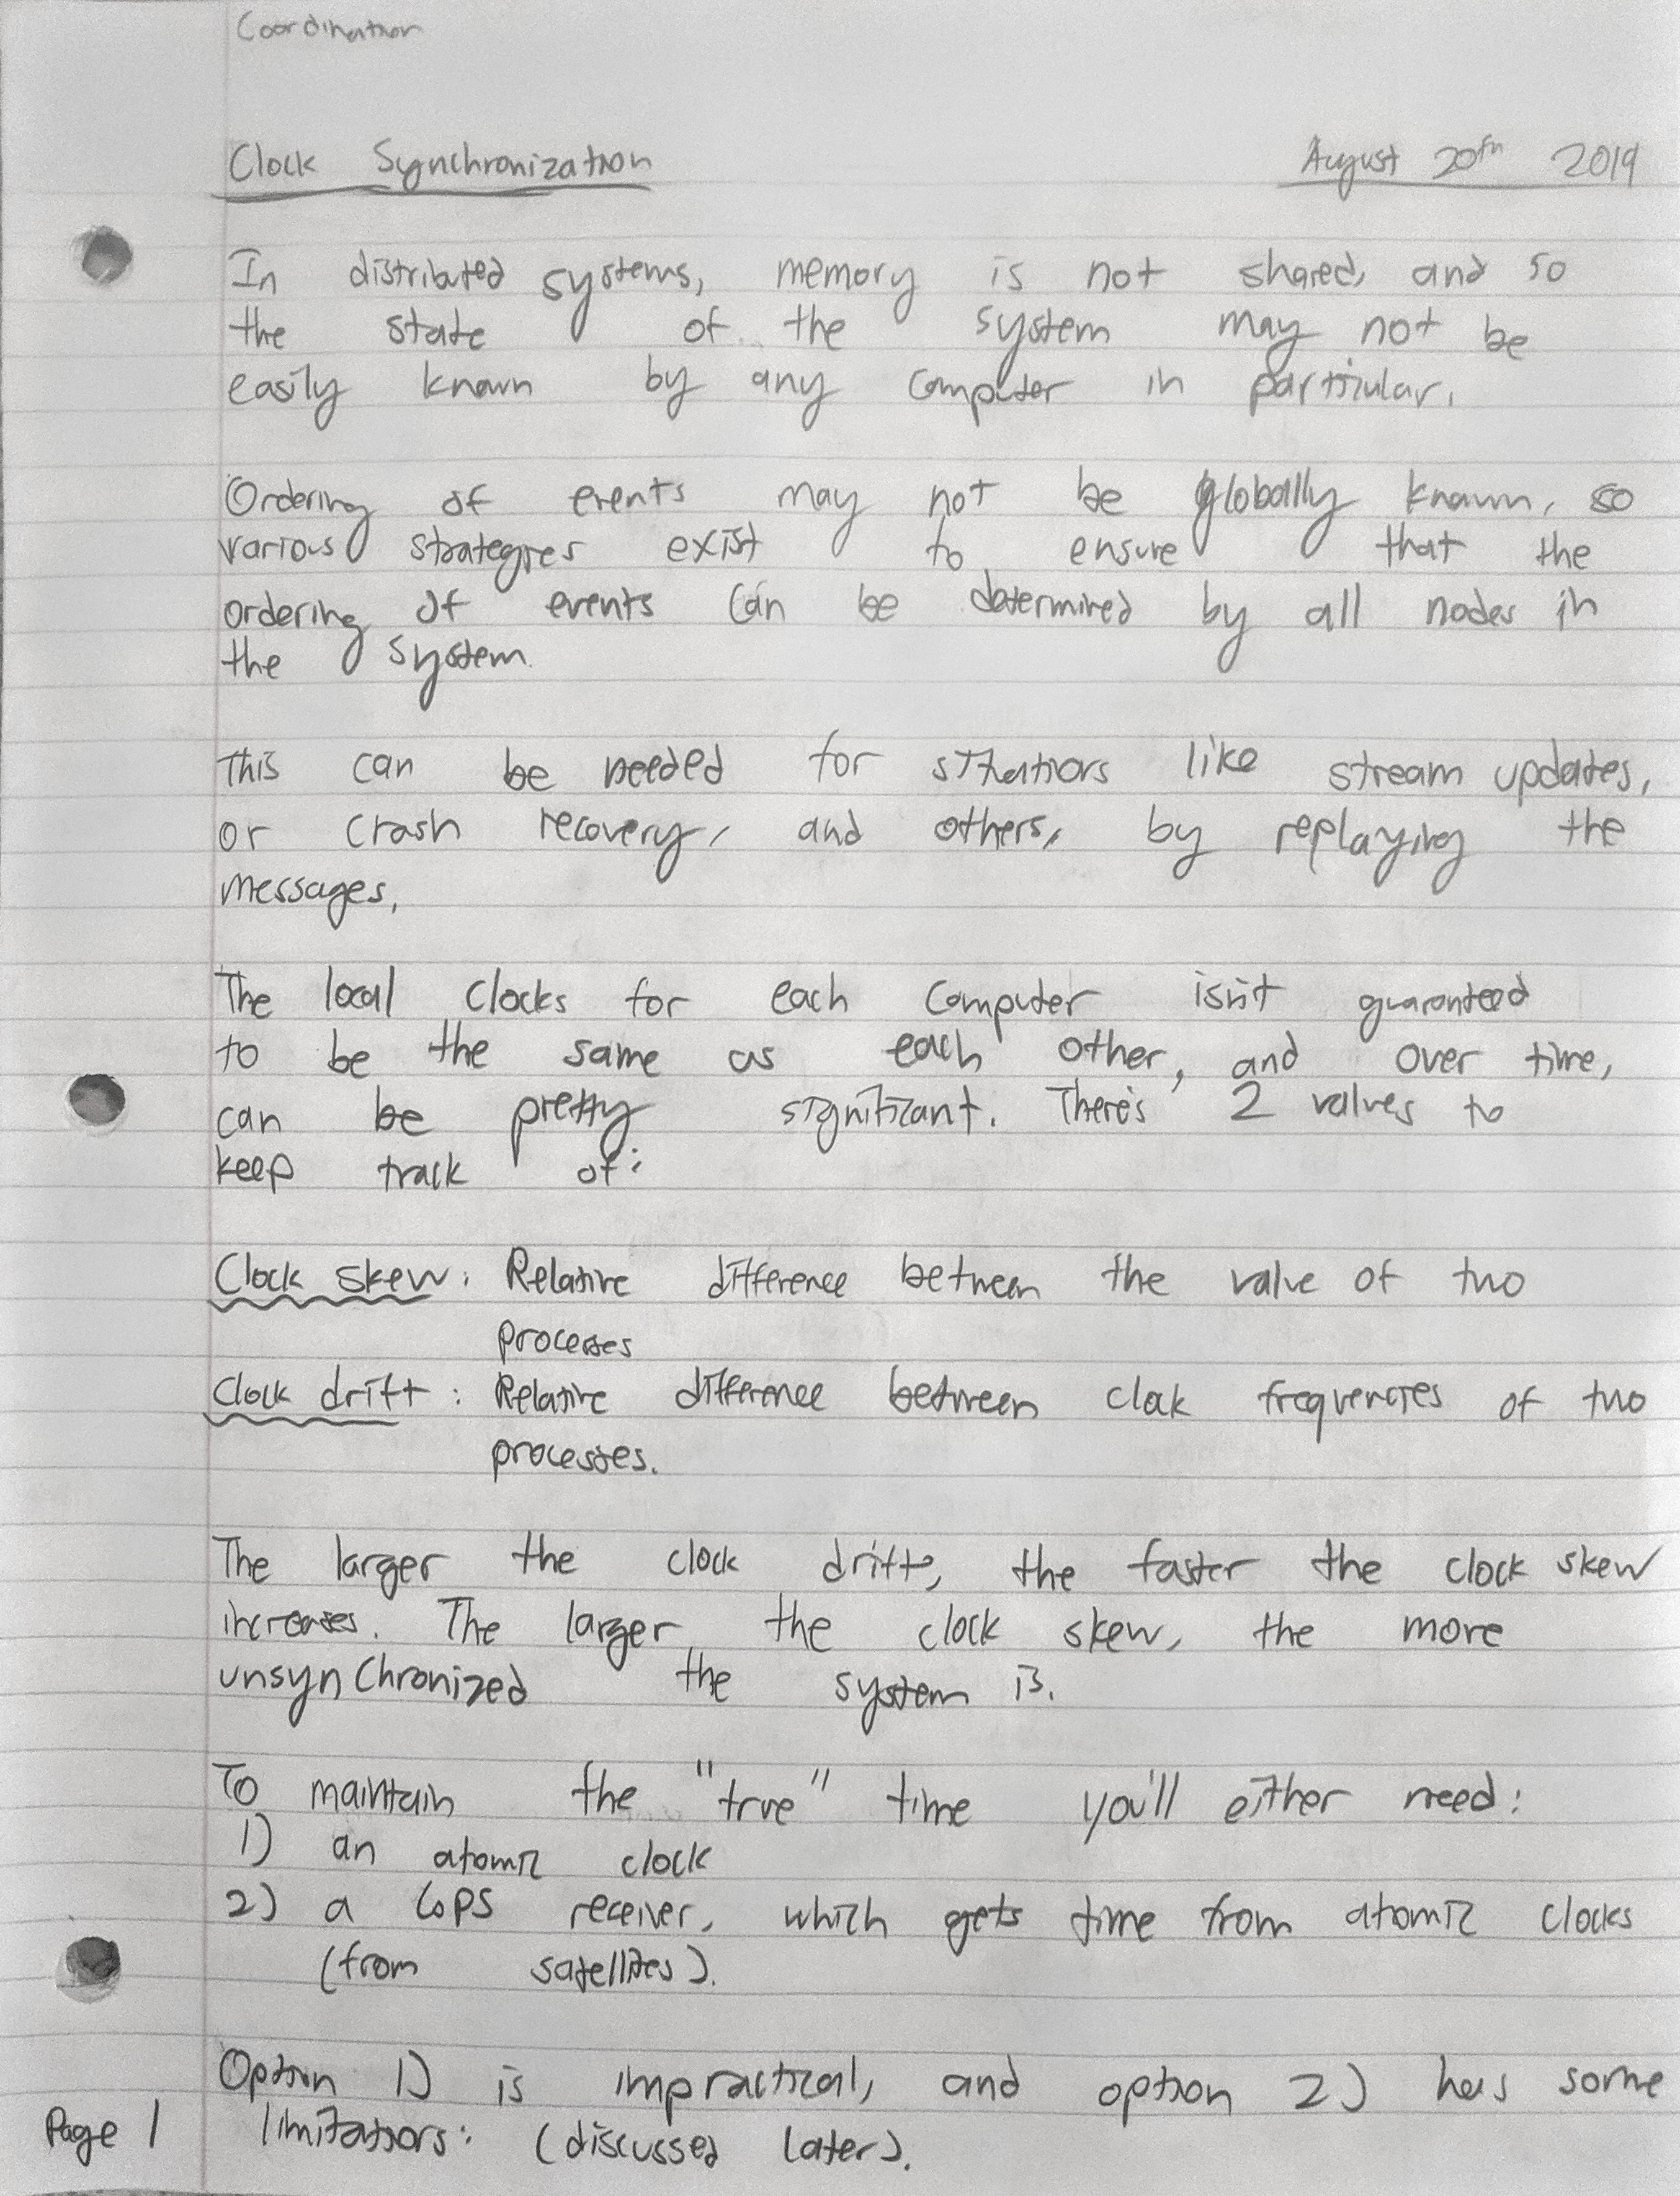 Coordination
Clock Synchronization August 20th 2019
In distributed systems, memory is not shared, and so
the state of the system may not be
easily known by any computer in particular.
Ordering of events may not be globally known, so
various strategies exist to ensure that the
ordering of events can be determined by all nodes in
the system.
This can be needed for situations like stream updates,
or crash recovery, and others, by replaying the
messages.
The local clocks for each computer isn't guaranteed
to be the same as each other, and over time,
can be pretty significant. There's 2 values to
keep track of:
Clock skew: Relative difference between the value of two
processes
Clock drift: Relative difference between clock frequencies of two
processes.
The larger the clock drift, the faster the clock skew
increases. The larger the clock skew, the more
unsynchronized the system is.
To maintain the "true" time you'll either need:
1) an atomic clock
2) a GPS receiver, which gets time from atomic clocks
(from satellites).
Option 1) is impractical, and option 2) has some
Page 1 limitations: (discussed later).